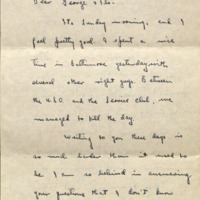 Dear George & Flo.
It's Sunday morning, and I
feel pretty good. I spent a nice
time in Baltimore yesterday with
several other right guys. Between
the U.S.O. and the Service Club, we
managed to kill the day.
Writing to you these days is
so much harder than it used to
be. I am so behind in answering
your questions that I don't know